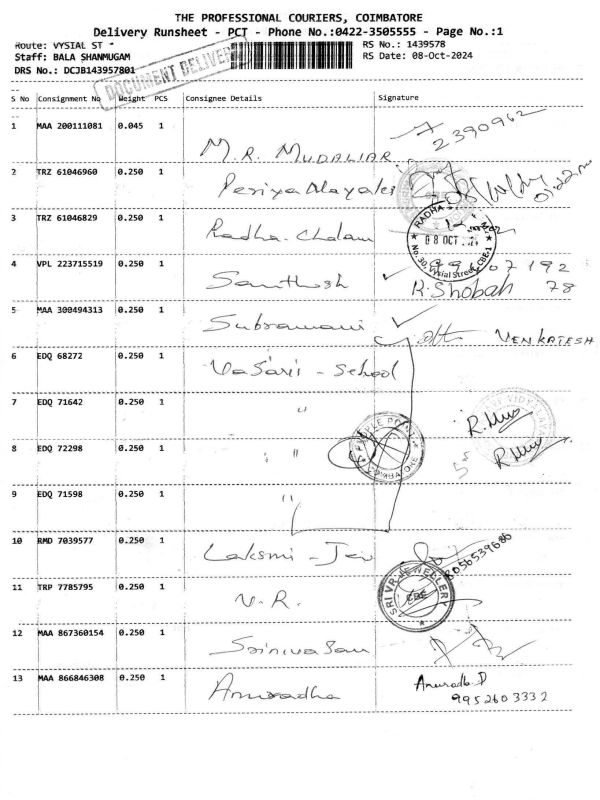 THE PROFESSIONAL COURIERS, COIMBATORE
Delivery Runsheet - PCT - Phone No.:0422-3505555 - Page No.:1
Route: VYSIAL ST - RS No.: 1439578
Staff: BALA SHANMUGAM RS Date: 08-Oct-2024
DRS No.: DCJB143957801
DOCUMENT DELIVERY
S No Consignment No Weight PCS Consignee Details Signature
1 MAA 200111081 0.045 1 M.R. MUDALIAR 2390962
2 TRZ 61046960 0.250 1 Periya Nayaki
3 TRZ 61046829 0.250 1 Radha-Chalam
RADHA
08 OCT
No. 30, Vysial Street, CBE-1
4 VPL 223715519 0.250 1 Santhosh R. Shobah 78
5 MAA 300494313 0.250 1 Subramani VENKATESH
6 EDQ 68272 0.250 1 - School
7 EDQ 71642 0.250 1 "
8 EDQ 72298 0.250 1 "
9 EDQ 71598 0.250 1 "
10 RMD 7039577 0.250 1 Laksmi - 8056539686
11 TRP 7785795 0.250 1 V.R.
SRI VR JEWELLERY
CBE
12 MAA 867360154 0.250 1 Srinivasan
13 MAA 866846308 0.250 1 Anuradha Anuradha D
9952603332